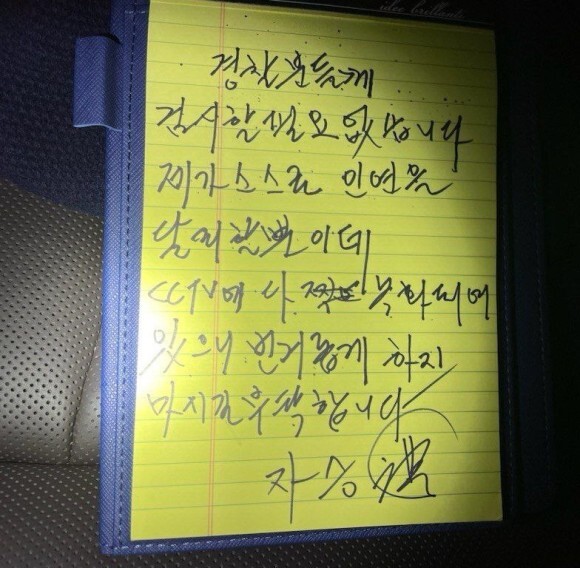 idée brillante
경찰분들께
검시할 필요 없습니다
제가 스스로 인연을
달리할 뿐이데
CCTV에 다 녹화되어
있으니 번거롭게 하지
마시길 부탁합니다
자승